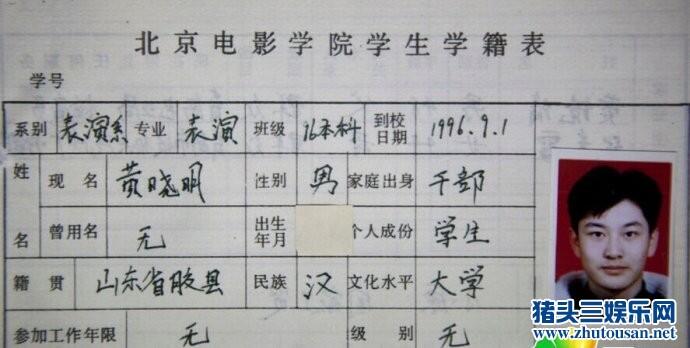 北京电影学院学生学籍表
学号
系别 表演系 专业 表演 班级 96本科 到校日期 1996.9.1
姓名 现名 黄晓明 性别 男 家庭出身 干部
曾用名 无 出生年月 个人成份 学生
籍贯 山东省胶县 民族 汉 文化水平 大学
参加工作年限 无 级别 无
猪头三娱乐网
www.zhutousan.net